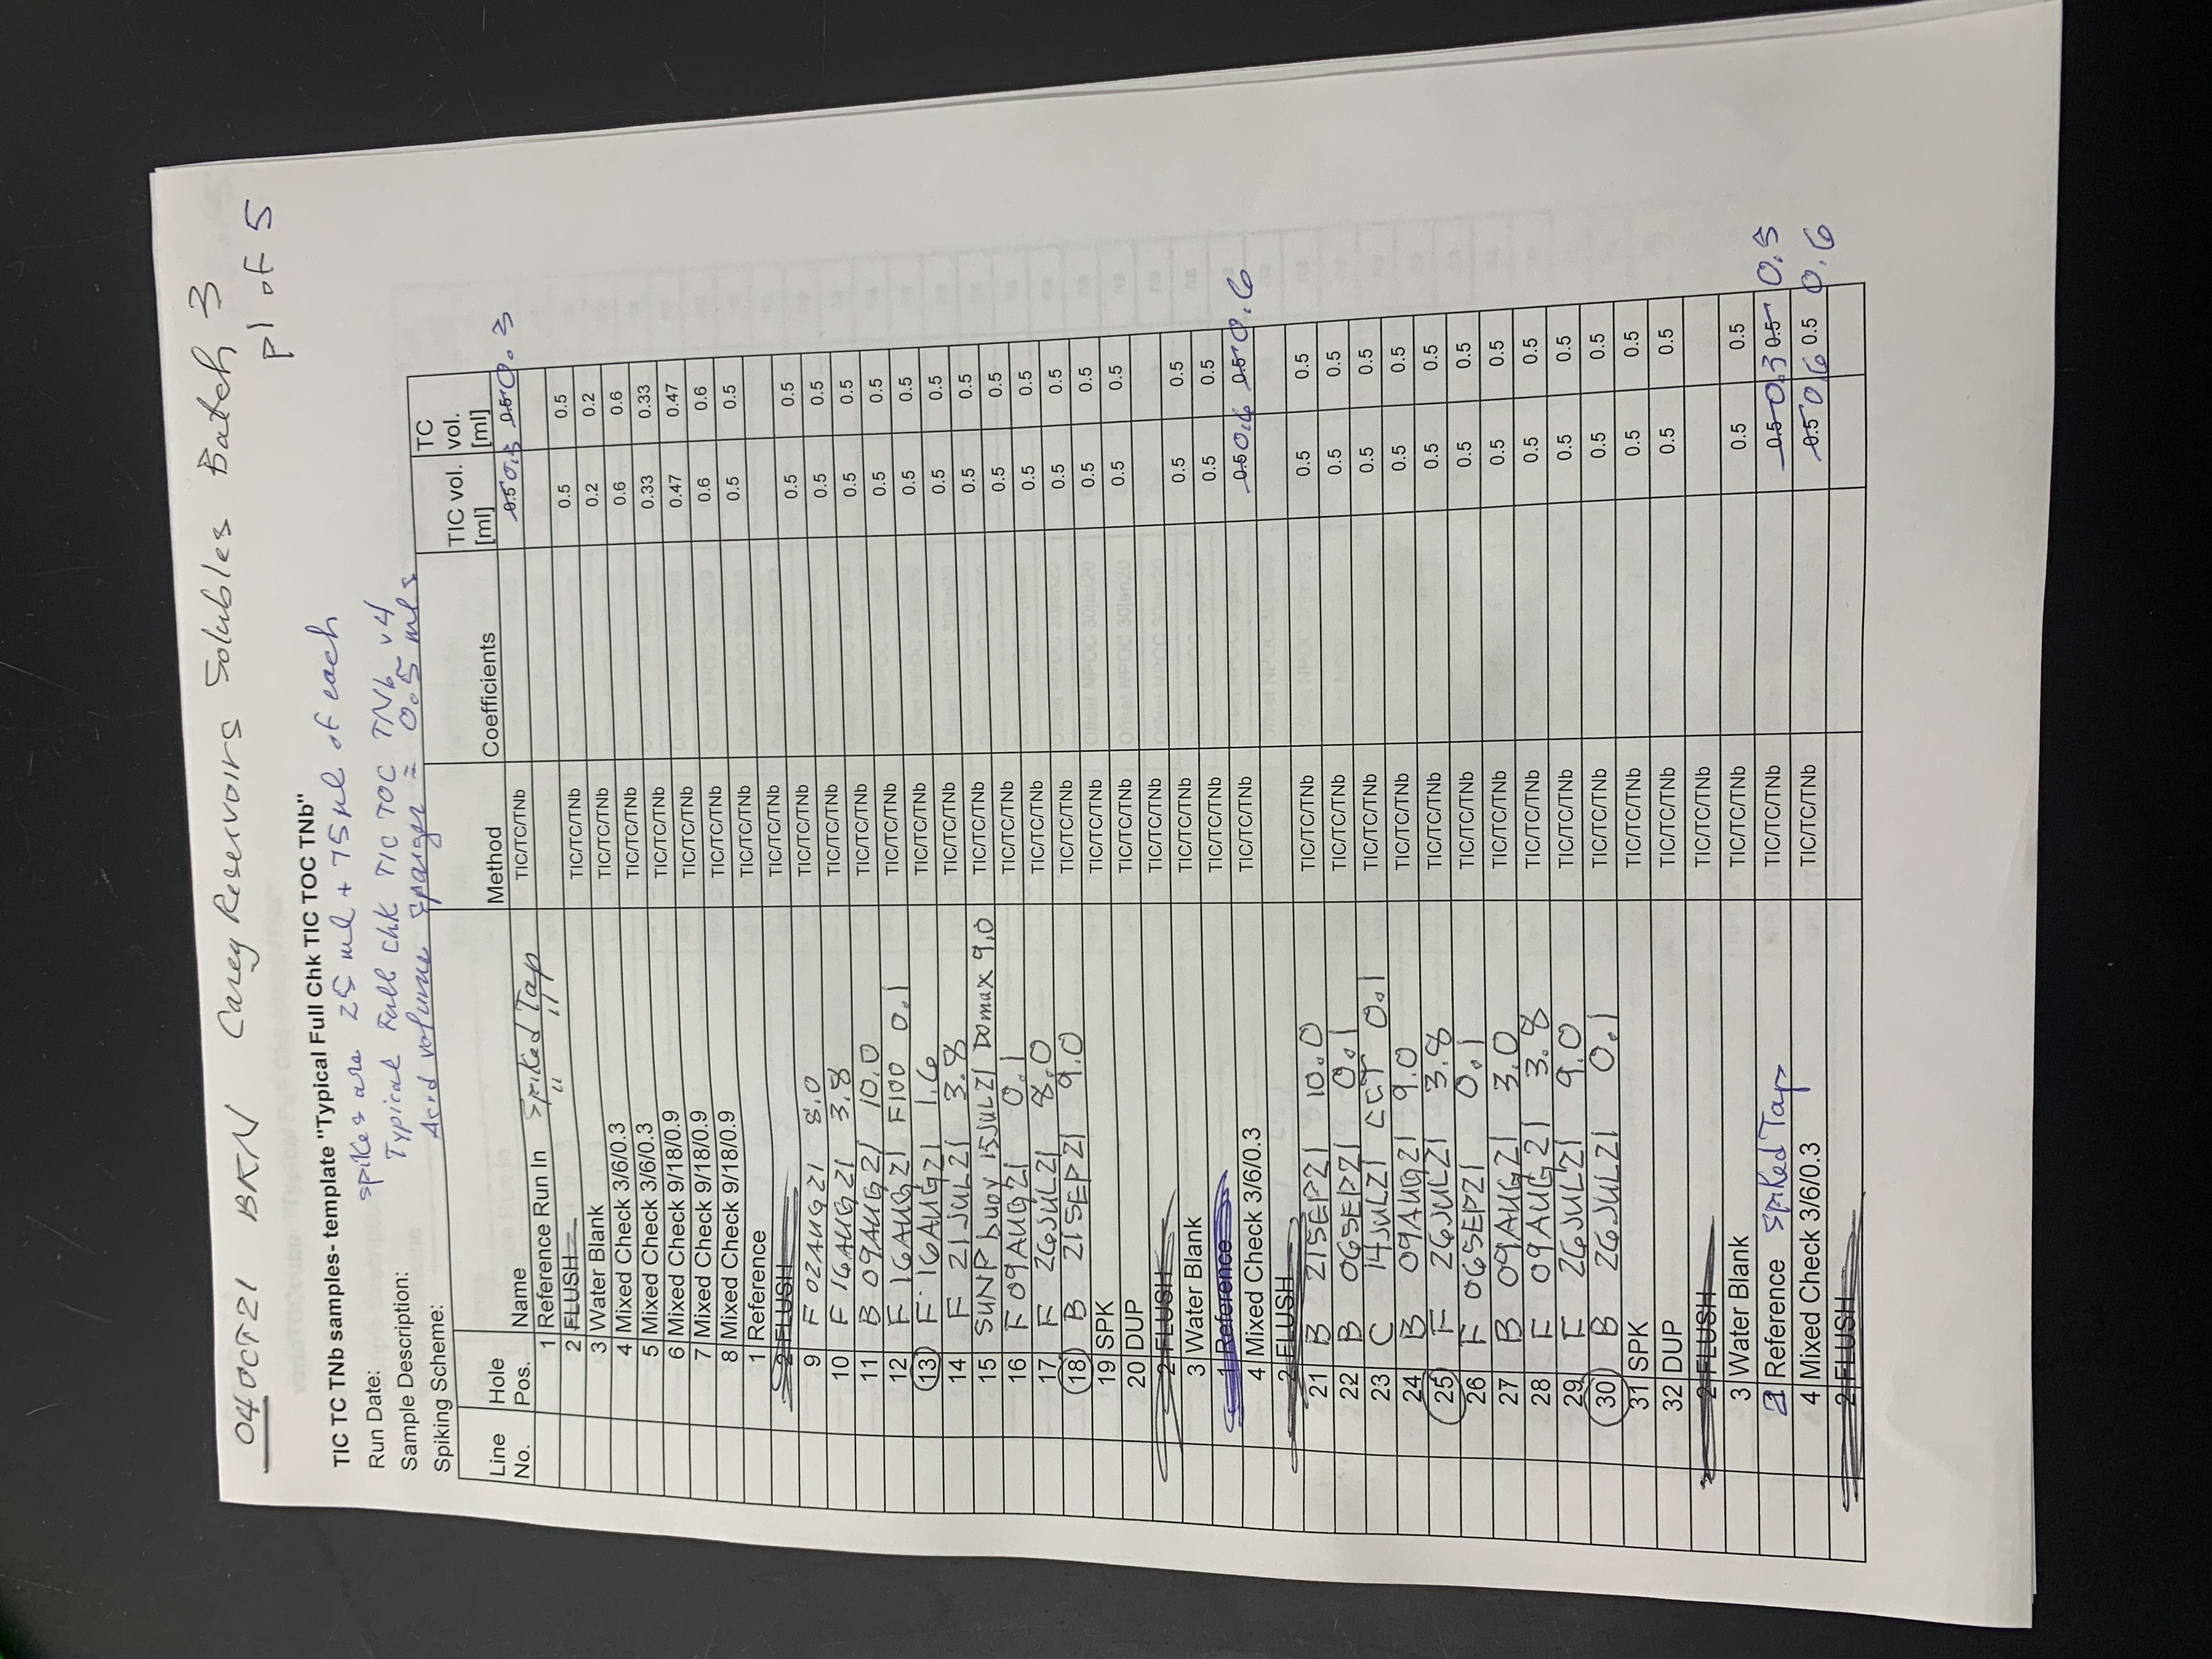 04OCT21 BKN Carey Reservoirs Solubles Batch 3
p1 of 5
TIC TC TNb samples- template "Typical Full Chk TIC TOC TNb"
Run Date: spikes are 25 ml + 75 µl of each
Sample Description: Typical Full Chk TIC TOC TNb v4
Spiking Scheme: Acid volume sparger = 0.5 mls
Line No. Hole Pos. Name Method Coefficients TIC vol. [ml] TC vol. [ml]
1 Reference Run In Spiked Tap TIC/TC/TNb 0.5 0.3 0.5 0.3
2 FLUSH " "
3 Water Blank TIC/TC/TNb 0.5 0.5
4 Mixed Check 3/6/0.3 TIC/TC/TNb 0.2 0.2
5 Mixed Check 3/6/0.3 TIC/TC/TNb 0.6 0.6
6 Mixed Check 9/18/0.9 TIC/TC/TNb 0.33 0.33
7 Mixed Check 9/18/0.9 TIC/TC/TNb 0.47 0.47
8 Mixed Check 9/18/0.9 TIC/TC/TNb 0.6 0.6
1 Reference TIC/TC/TNb 0.5 0.5
2 FLUSH TIC/TC/TNb
9 F 02AUG21 8.0 TIC/TC/TNb 0.5 0.5
10 F 16AUG21 3.8 TIC/TC/TNb 0.5 0.5
11 B 09AUG21 10.0 TIC/TC/TNb 0.5 0.5
12 F 16AUG21 F100 0.1 TIC/TC/TNb 0.5 0.5
13 F 16AUG21 1.6 TIC/TC/TNb 0.5 0.5
14 F 21JUL21 3.8 TIC/TC/TNb 0.5 0.5
15 SUNP buoy 15JUL21 DOmax 9.0 TIC/TC/TNb 0.5 0.5
16 F 09AUG21 0.1 TIC/TC/TNb 0.5 0.5
17 F 26JUL21 8.0 TIC/TC/TNb 0.5 0.5
18 B 21SEP21 9.0 TIC/TC/TNb 0.5 0.5
19 SPK TIC/TC/TNb 0.5 0.5
20 DUP TIC/TC/TNb 0.5 0.5
2 FLUSH TIC/TC/TNb
3 Water Blank TIC/TC/TNb 0.5 0.5
1 Reference TIC/TC/TNb 0.5 0.5
4 Mixed Check 3/6/0.3 TIC/TC/TNb 0.5 0.6 0.5 0.6
2 FLUSH
21 B 21SEP21 10.0 TIC/TC/TNb 0.5 0.5
22 B 06SEP21 0.1 TIC/TC/TNb 0.5 0.5
23 C 14JUL21 CCT 0.1 TIC/TC/TNb 0.5 0.5
24 B 09AUG21 9.0 TIC/TC/TNb 0.5 0.5
25 F 26JUL21 3.8 TIC/TC/TNb 0.5 0.5
26 F 06SEP21 0.1 TIC/TC/TNb 0.5 0.5
27 B 09AUG21 3.0 TIC/TC/TNb 0.5 0.5
28 F 09AUG21 3.8 TIC/TC/TNb 0.5 0.5
29 F 26JUL21 9.0 TIC/TC/TNb 0.5 0.5
30 B 26JUL21 0.1 TIC/TC/TNb 0.5 0.5
31 SPK TIC/TC/TNb 0.5 0.5
32 DUP TIC/TC/TNb 0.5 0.5
2 FLUSH TIC/TC/TNb
3 Water Blank TIC/TC/TNb 0.5 0.5
2 Reference Spiked Tap TIC/TC/TNb 0.5 0.3 0.5 0.3
4 Mixed Check 3/6/0.3 TIC/TC/TNb 0.5 0.6 0.5 0.6
2 FLUSH